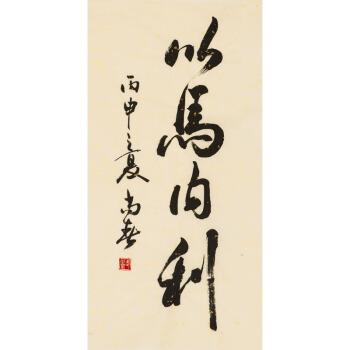 以馬内利
丙申之夏尚春